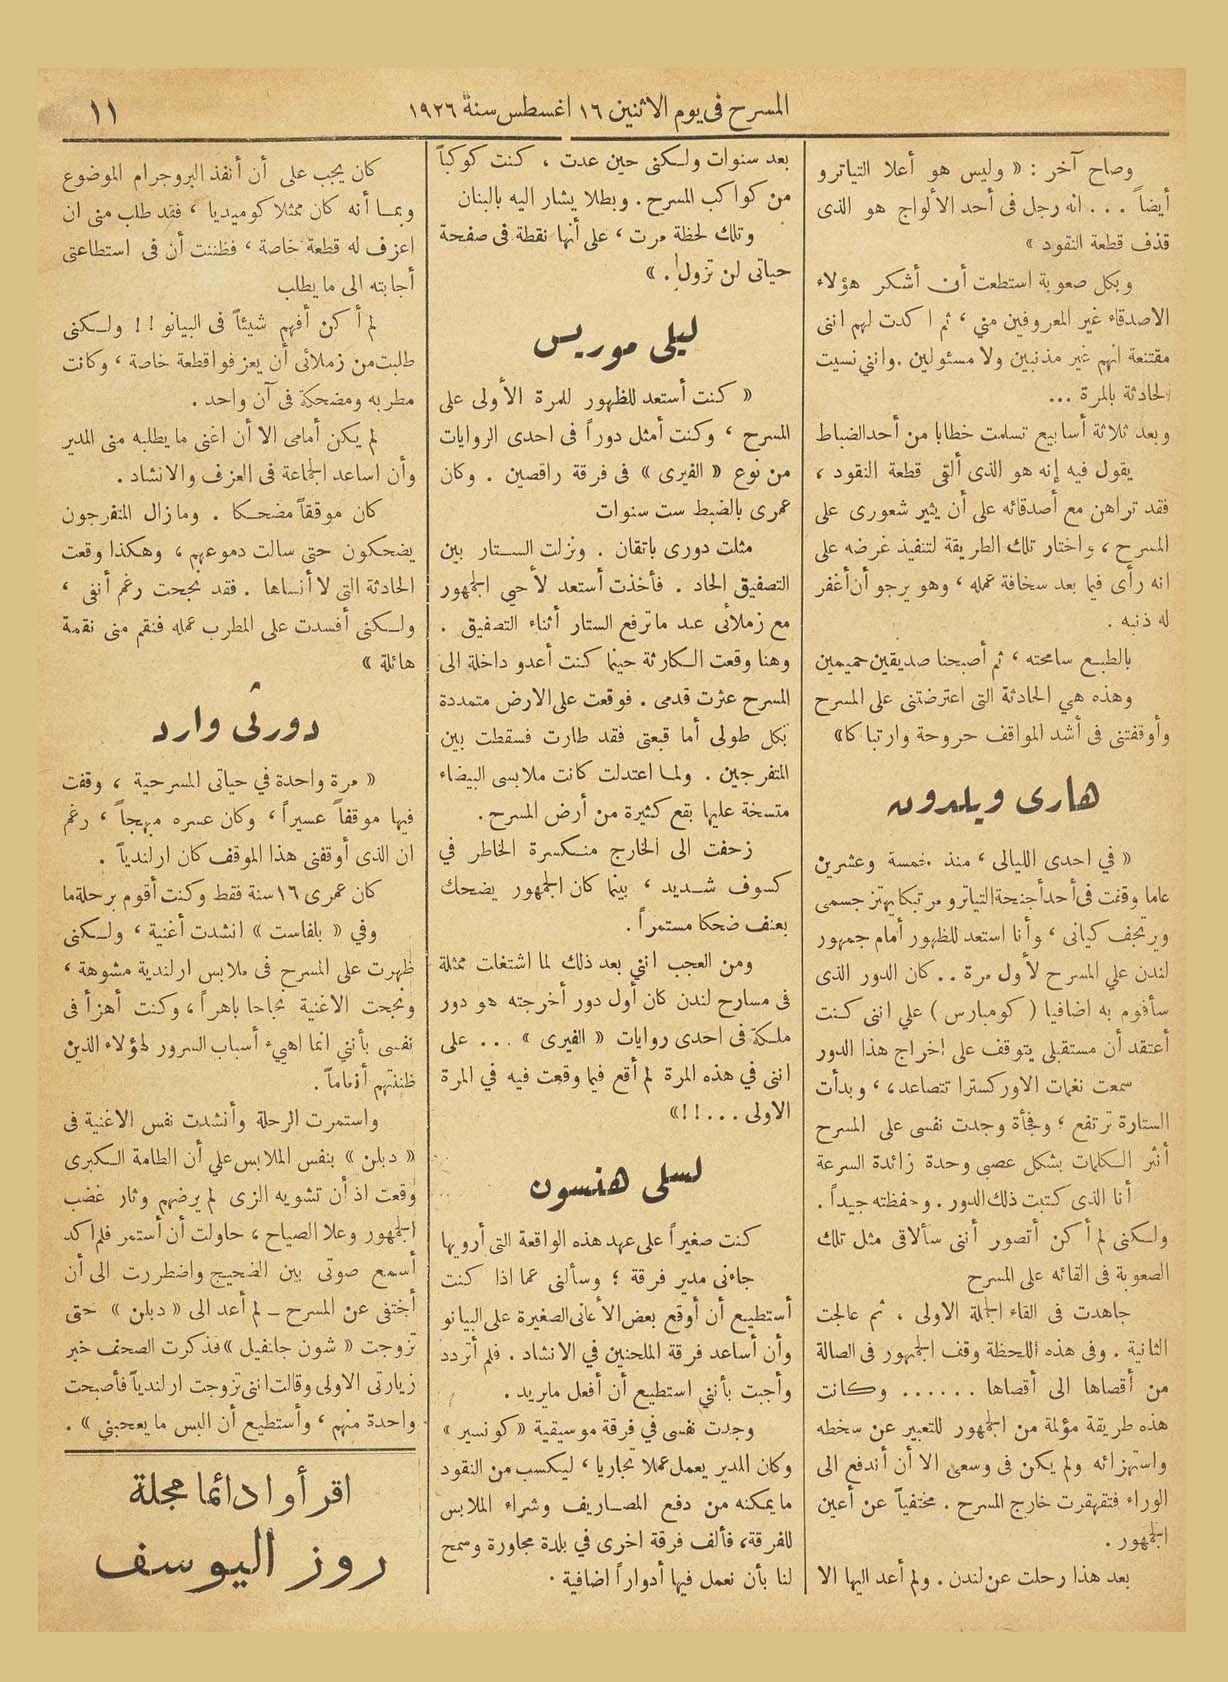 المسرح فى يوم الاثنين ١٦ اغسطس سنة ١٩٢٦
١١
وصاح آخر : « وليس هو أعلا التياترو
أيضاً . . . انه رجل فى أحد الألواج هو الذى
قذف قطعة النقود »
وبكل صعوبة استطعت أن أشكر هؤلاء
الاصدقاء غير المعروفين مني ، ثم اكدت لهم اننى
مقتنعة انهم غير مذنبين ولا مسئولين . وانني نسيت
الحادثة بالمرة ...
وبعد ثلاثة أسابيع تسلمت خطابا من أحد الضباط
يقول فيه إنه هو الذى ألقى قطعة النقود ،
فقد تراهن مع أصدقائه على أن يثير شعورى على
المسرح ، واختار تلك الطريقة لتنفيذ غرضه على
انه رأى فيما بعد سخافة عمله ، وهو يرجو أن أغفر
له ذنبه .
بالطبع سامحته ، ثم أصبحنا صديقين حميمين
وهذه هي الحادثة التى اعترضتنى على المسرح
وأوقفتنى فى أشد المواقف حروجة وارتباكا»
هارى ويلدون
« في احدى الليالى ، منذ خمسة وعشرين
عاما وقفت فى أحد أجنحة التياترو مرتبكا يهتز جسمى
ويرتجف كيانى ، وأنا استعد للظهور أمام جمهور
لندن علي المسرح لأول مرة . . كان الدور الذى
سأقوم به اضافيا ( كومبارس ) علي اننى كنت
أعتقد أن مستقبلى يتوقف على اخراج هذا الدور
سمعت نغمات الاوركسترا تتصاعد، ، وبدأت
الستارة ترتفع ؛ وفجأة وجدت نفسى على المسرح
أنثر الكلمات بشكل عصبى وحدة زائدة السرعة
أنا الذى كتبت ذلك الدور . وحفظته جيداً .
ولكنى لم أكن أتصور أننى سألاقى مثل تلك
الصعوبة فى القائه على المسرح
جاهدت فى القاء الجملة الاولى ، ثم عالجت
الثانية . وفى هذه اللحظة وقف الجمهور فى الصالة
من أقصاها الى أقصاها ...... وكانت
هذه طريقة مؤلمة من الجمهور للتعبير عن سخطه
واستهزائه ولم يكن فى وسعى الا أن أندفع الى
الوراء فتقهقرت خارج المسرح . مختفياً عن أعين
الجمهور .
بعد هذا رحلت عن لندن . ولم أعد اليها الا
بعد سنوات ولكنى حين عدت ، كنت كوكباً
من كواكب المسرح . وبطلا يشار اليه بالبنان
وتلك لحظة مرت ، على أنها نقطة فى صفحة
حياتى لن تزول! . »
ليلى موريس
« كنت أستعد للظهور للمرة الأولى على
المسرح ، وكنت أمثل دوراً فى احدى الروايات
من نوع « الفيرى » فى فرقة راقصين . وكان
عمرى بالضبط ست سنوات
مثلت دورى باتقان . ونزلت الستار بين
التصفيق الحاد . فأخذت أستعد لأحيي الجمهور
مع زملائى عند ما ترفع الستار أثناء التصفيق .
وهنا وقعت الكارثة حينما كنت أعدو داخلة الى
المسرح عثرت قدمى . فوقعت على الارض متمددة
بكل طولى أما قبعتى فقد طارت فسقطت بين
المتفرجين . ولما اعتدلت كانت ملابسى البيضاء
متسخة عليها بقع كثيرة من أرض المسرح .
زحفت الى الخارج منكسرة الخاطر في
كسوف شديد ، بينما كان الجمهور يضحك
بعنف ضحكا مستمراً .
ومن العجب انني بعد ذلك لما اشتغلت ممثلة
فى مسارح لندن كان أول دور أخرجته هو دور
ملكة فى احدى روايات « الفيرى » ... على
اننى في هذه المرة لم أقع فيما وقعت فيه في المرة
الاولى ...!!»
لسلى هنسون
كنت صغيراً على عهد هذه الواقعة التى أرويها
جاءنى مدير فرقة ؛ وسألنى عما اذا كنت
أستطيع أن أوقع بعض الأغانى الصغيرة على البيانو
وأن أساعد فرقة الملحنين في الانشاد . فلم أتردد
وأجبت بأنني استطيع أن أفعل ما يريد .
وجدت نفسى في فرقة موسيقية «كونسير»
وكان المدير يعمل عملا تجاريا ، ليكسب من النقود
ما يمكنه من دفع المصاريف وشراء الملابس
للفرقة، فألف فرقة اخرى في بلدة مجاورة وسمح
لنا بأن نعمل فيها أدواراً اضافية .
كان يجب على أن أنفذ البروجرام الموضوع
وبما أنه كان ممثلا كوميديا ، فقد طلب منى ان
اعزف له قطعة خاصة ، فظننت أن فى استطاعتى
أجابته الى ما يطلب
لم أكن أفهم شيئاً فى البيانو !! ولكنى
طلبت من زملائى أن يعزفوا قطعة خاصة ، وكانت
مطربه ومضحكة فى آن واحد .
لم يكن أمامى الا أن اغنى ما يطلبه منى المدير
وأن اساعد الجماعة فى العزف والانشاد .
كان موقفاً مضحكا . ومازال المتفرجون
يضحكون حتى سالت دموعهم ، وهكذا وقعت
الحادثة التى لا أنساها . فقد نجحت رغم أنفى ،
ولكنى أفسدت على المطرب عمله فنقم منى نقمة
هائلة »
دورثى وارد
« مرة واحدة في حياتى المسرحية ، وقفت
فيها موقفاً عسيراً ، وكان عسره مبهجاً ، رغم
ان الذى أوقفنى هذا الموقف كان ارلندياً .
كان عمرى ١٦ سنة فقط وكنت أقوم برحلة ما
وفي « بلفاست » انشدت أغنية ، ولكنى
ظهرت على المسرح فى ملابس ارلندية مشوهة ،
ونجحت الاغنية نجاحا باهراً ، وكنت أهزأ فى
نفسى بأنني انما اهيء أسباب السرور لهؤلاء الذين
ظننتهم أذماماً .
واستمرت الرحلة وأنشدت نفس الاغنية فى
« دبلن » بنفس الملابس علي أن الطامة الكبرى
وقعت اذ أن تشويه الزى لم يرضهم وثار غضب
الجمهور وعلا الصياح ، حاولت أن أستمر فلم اكد
أسمع صوتى بين الضجيج واضطررت الى أن
أختفى عن المسرح - لم أعد الى « دبلن » حتى
تزوجت « شون جلنفيل » فذكرت الصحف خبر
زيارتى الاولى وقالت اننى تزوجت ارلندياً فأصبحت
واحدة منهم ، وأستطيع أن البس ما يعجبني » .
اقرأوا دائما مجلة
روز اليوسف